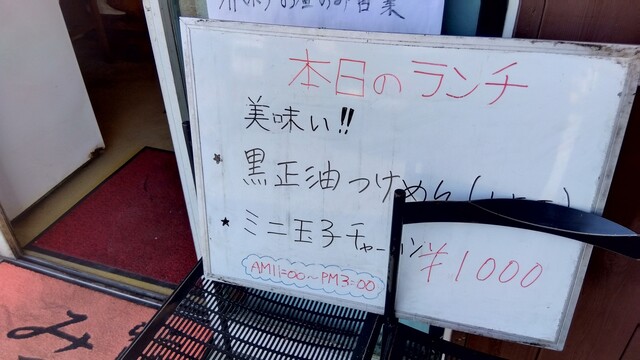 本日のランチ
美味い!!
★ 黒正油つけめん(
★ ミニ玉子チャーハン ¥1000
AM11=00〜PM3=00
み